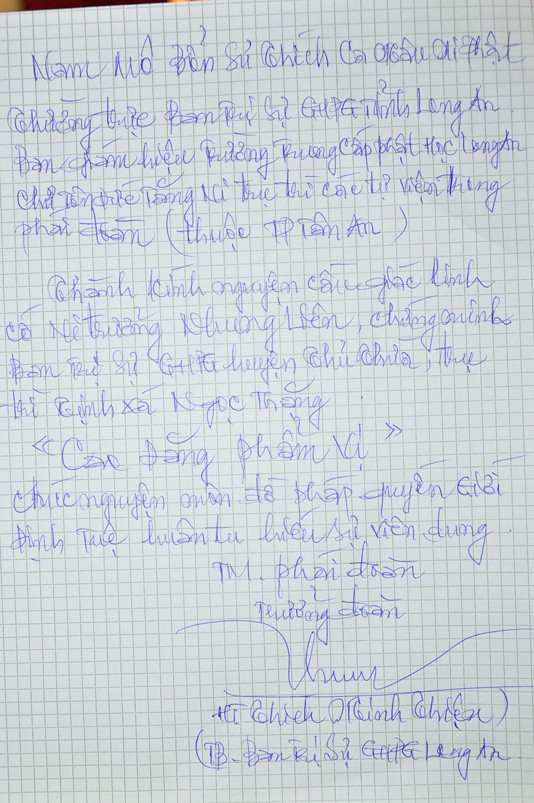 Nam Mô Bổn Sư Thích Ca Mâu Ni Phật
Thường trực Ban Trị Sự GHPG Tỉnh Long An
Ban giám hiệu Trường Trung Cấp Phật Học Long An
Chư Tôn Đức Tăng Ni trụ trì các tự viện trong
phái đoàn (thuộc TP Tân An)
Thành kính nguyện cầu giác linh
cố Ni trưởng Nhung Liên, chứng minh
Ban Trị Sự GHPG huyện Thủ Thừa, trụ
trì Tịnh xá Ngọc Thắng
"Cao Đăng phẩm vị"
Chúc nguyện môn đồ pháp quyến Giới
Định Tuệ luôn tu hiếu sự viên dung.
TM. phái đoàn
Trưởng đoàn
HT Thích Minh Thiện)
(TB. Ban Trị Sự GHPG Long An